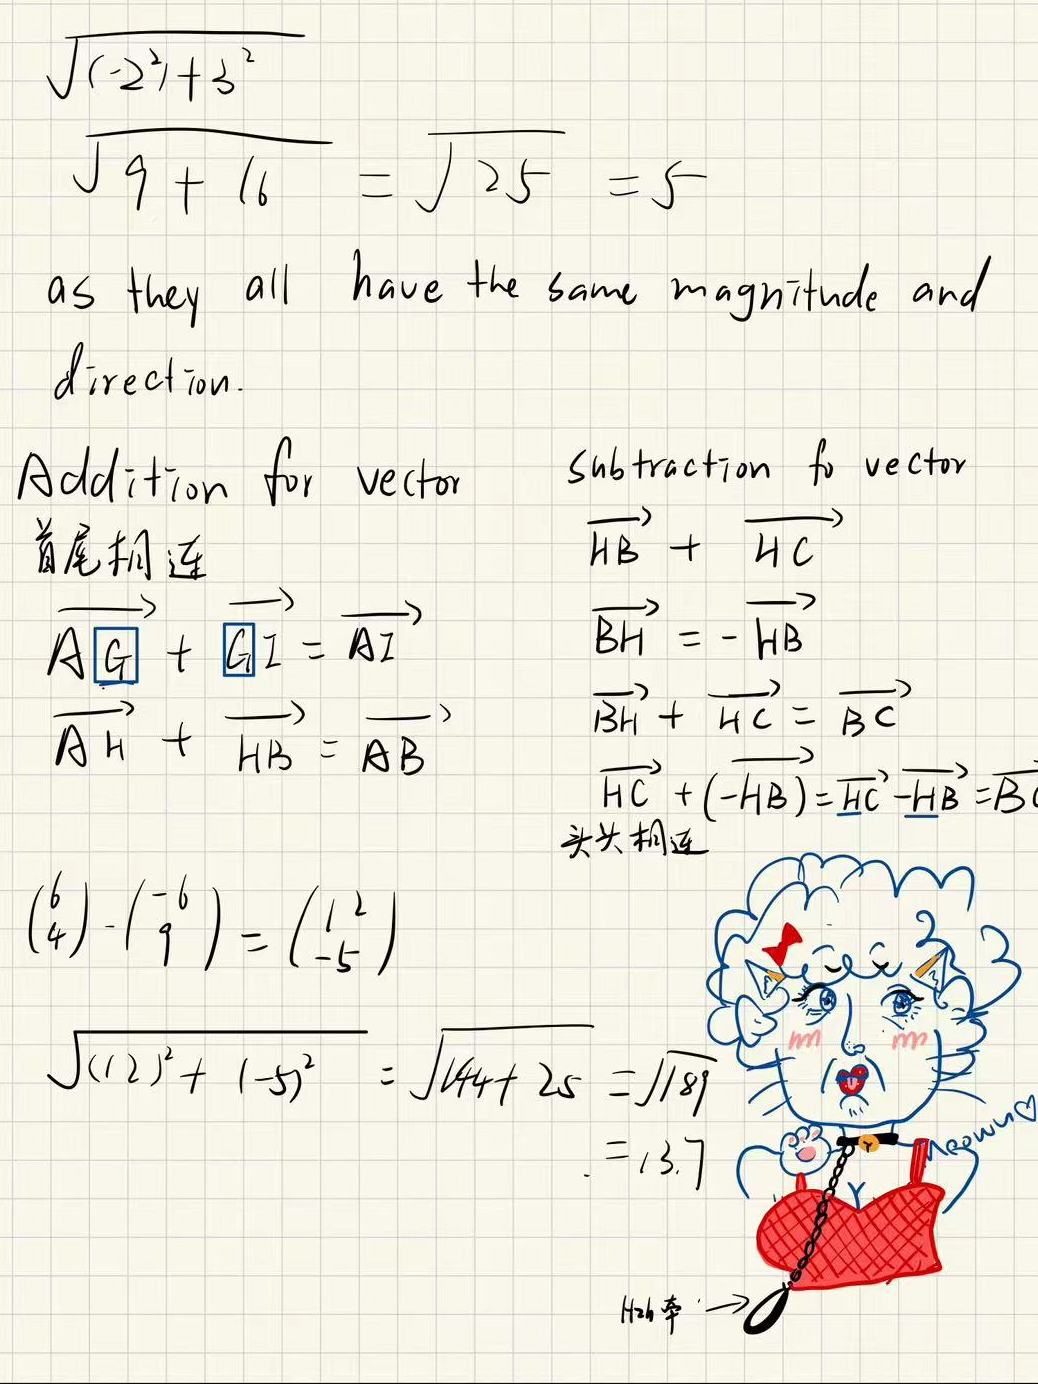 √((-2²)+3²
√9+16 = √25 = 5
as they all have the same magnitude and
direction.
Addition for vector
首尾相连
AG→ + GI→ = AI→
AH→ + HB→ = AB→
subtraction fo vector
HB→ + HC→
BH→ = -HB→
BH→ + HC→ = BC→
HC→ + (-HB→) = HC→ - HB→ = BC
头头相连
(6 4) - (-6 9) = (12 -5)
√(12)² + (-5)² = √144 + 25 = √189
= 13.7
Meown♡
Hzh牵 →